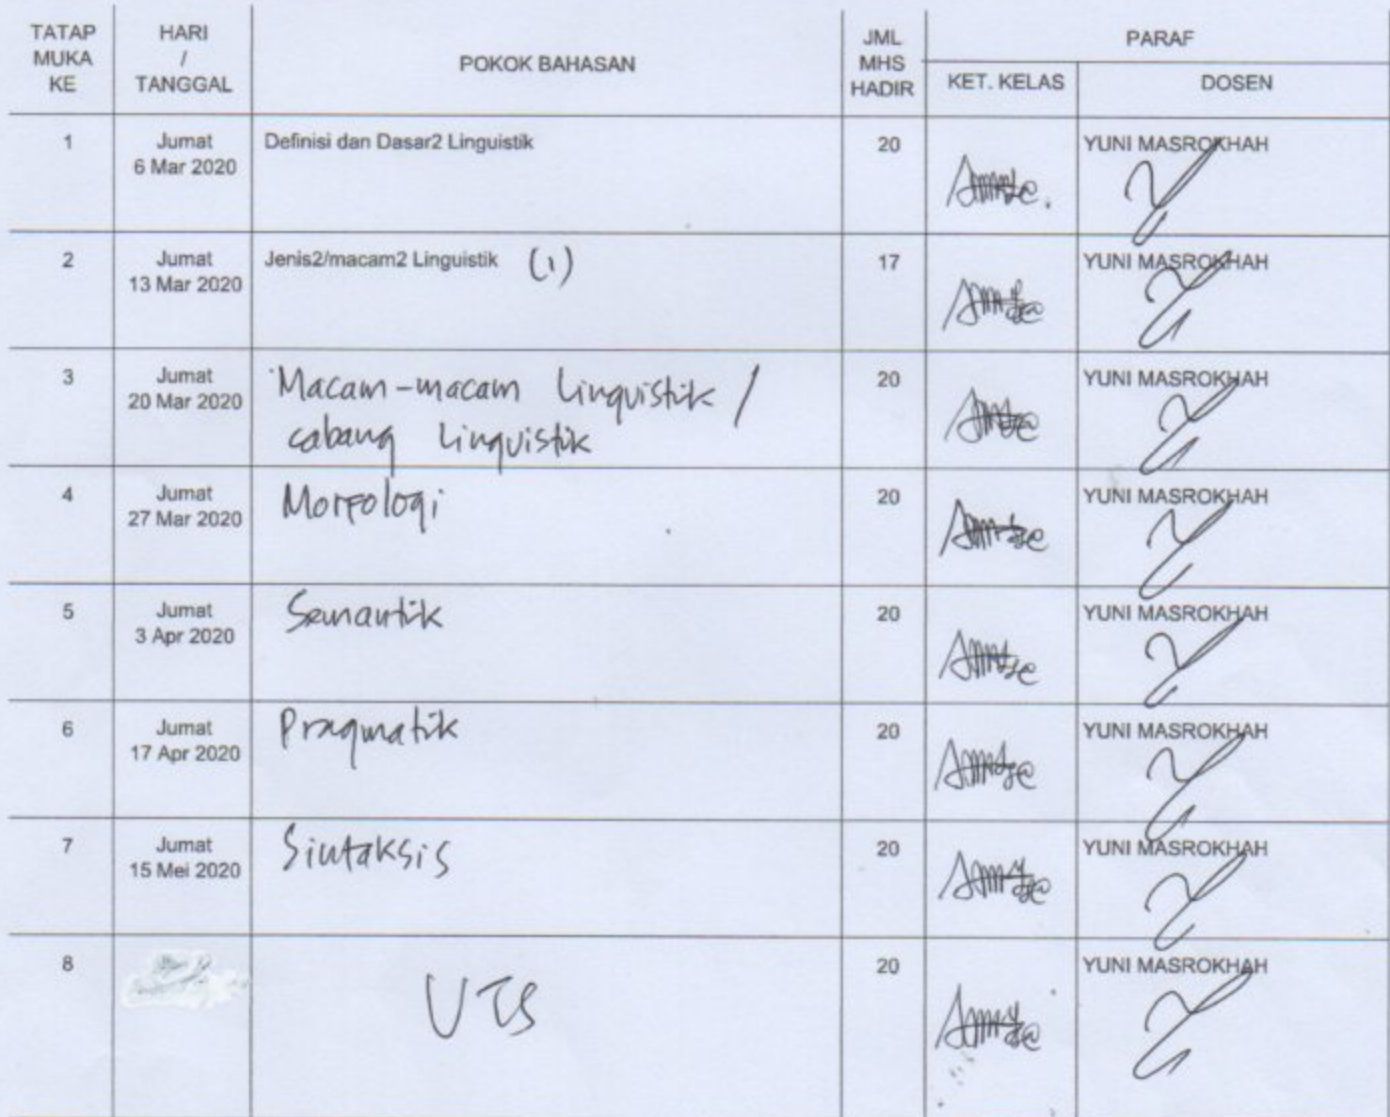 TATAP MUKA KE
HARI / TANGGAL
POKOK BAHASAN
JML MHS HADIR
PARAF
KET. KELAS
DOSEN
1
Jumat
6 Mar 2020
Definisi dan Dasar2 Linguistik
20
YUNI MASROKHAH
2
Jumat
13 Mar 2020
Jenis2/macam2 Linguistik (1)
17
YUNI MASROKHAH
3
Jumat
20 Mar 2020
Macam-macam Linguistik /
cabang Linguistik
20
YUNI MASROKHAH
4
Jumat
27 Mar 2020
Morfologi
20
YUNI MASROKHAH
5
Jumat
3 Apr 2020
Semantik
20
YUNI MASROKHAH
6
Jumat
17 Apr 2020
Pragmatik
20
YUNI MASROKHAH
7
Jumat
15 Mei 2020
Sintaksis
20
YUNI MASROKHAH
8
UTS
20
YUNI MASROKHAH